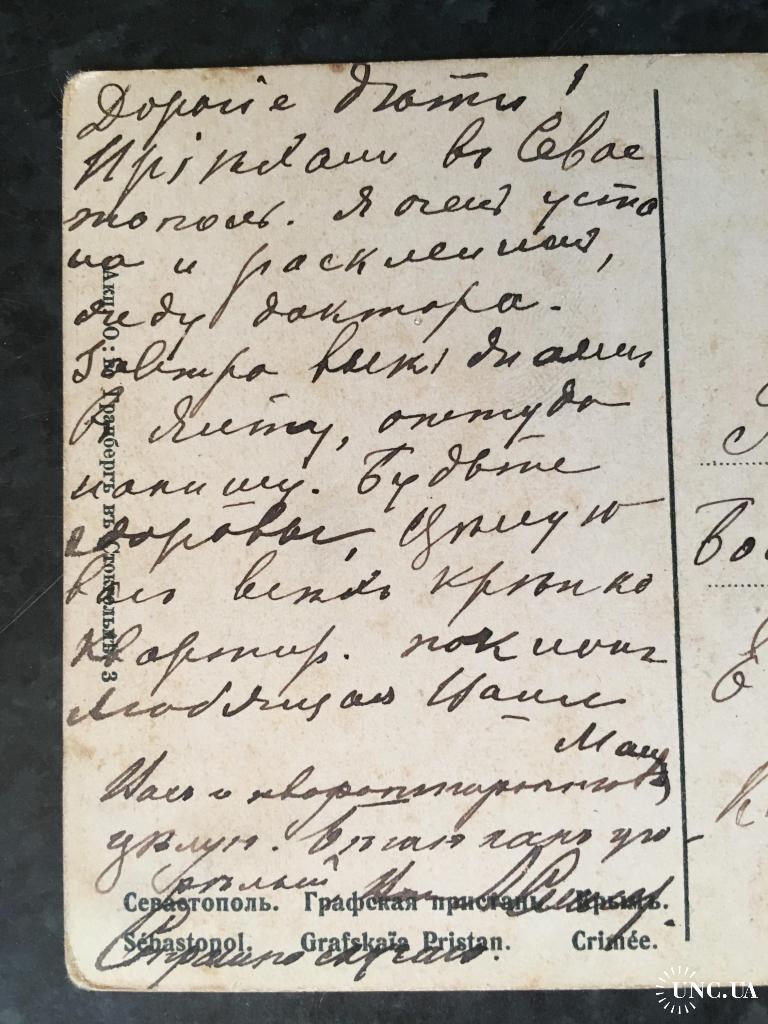 Дорогіе дѣти!
Пріѣхали въ Севас
тополь. Я очень уста
ла и расклеилась,
жду доктора.
Завтра выѣзжаемъ
въ Ялту, оттуда
напишу. Будьте
здоровы, Цѣлую
васъ всѣхъ крѣпко
квартир. поклонъ
Любящая Васъ
Мама
Васъ и квартирантовъ
цѣлую.
Страшно скучаю.
Акц. О-во Гранбергъ въ Стокгольмѣ. 3
Севастополь. Графская пристань. Крымъ.
Sébastopol. Grafskaïa Pristan. Crimée.
UNC.UA